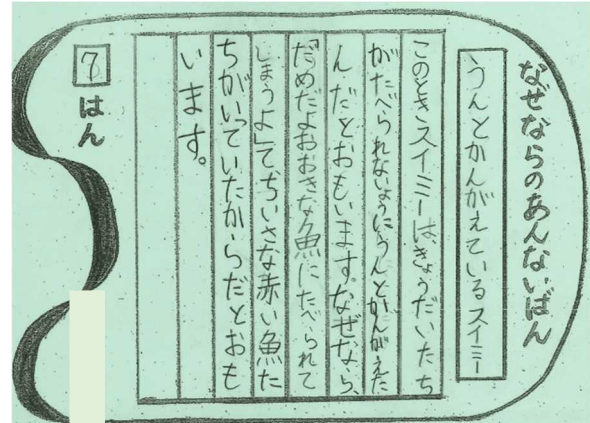 なぜならのあんないばん
うんとかんがえているスイミー
このときスイミーは、きょうだいたち
がたべられないようにうんとかんがえた
んだとおもいます。なぜなら、
「だめだよおおきな魚にたべられて
しまうよ」てちいさな赤い魚た
ちがいっていたからだとおも
います。
7はん